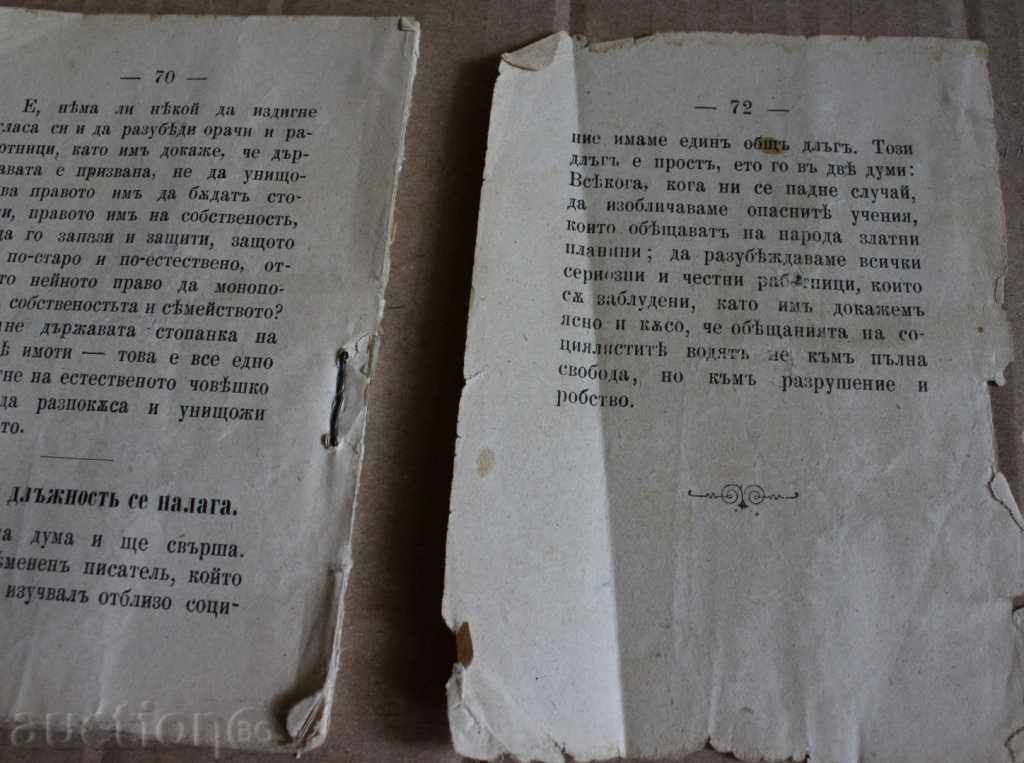 — 70 —
Е, нѣма ли нѣкой да издигне
гласа си и да разубѣди орачи и ра-
ботници, като имъ докаже, че дър-
жавата е призвана, не да унищо-
ва правото имъ да бѫдатъ сто-
и, правото имъ на собственость,
да го запази и защити, защото
по-старо и по-естествено, от-
то нейното право да монопо-
собствеността и сѣмейството?
не държавата стопанка на
ѣ имоти — това е все едно
тне на естественото човѣшко
да разпокѫса и унищожи
то.
длъжность се налага.
а дума и ще свърша.
ѣмененъ писатель, който
изучвалъ отблизо соци-
— 72 —
ние имаме единъ общъ длъгъ. Този
длъгъ е простъ, ето го въ двѣ думи:
Всѣкога, кога ни се падне случай,
да изобличаваме опаснитѣ учения,
които обѣщаватъ на народа златни
планини; да разубѣждаваме всички
сериозни и честни работници, които
сѫ заблудени, като имъ докажемъ
ясно и кѫсо, че обѣщанията на со-
циялиститѣ водятъ не къмъ пълна
свобода, но къмъ разрушение и
робство.
auction BG